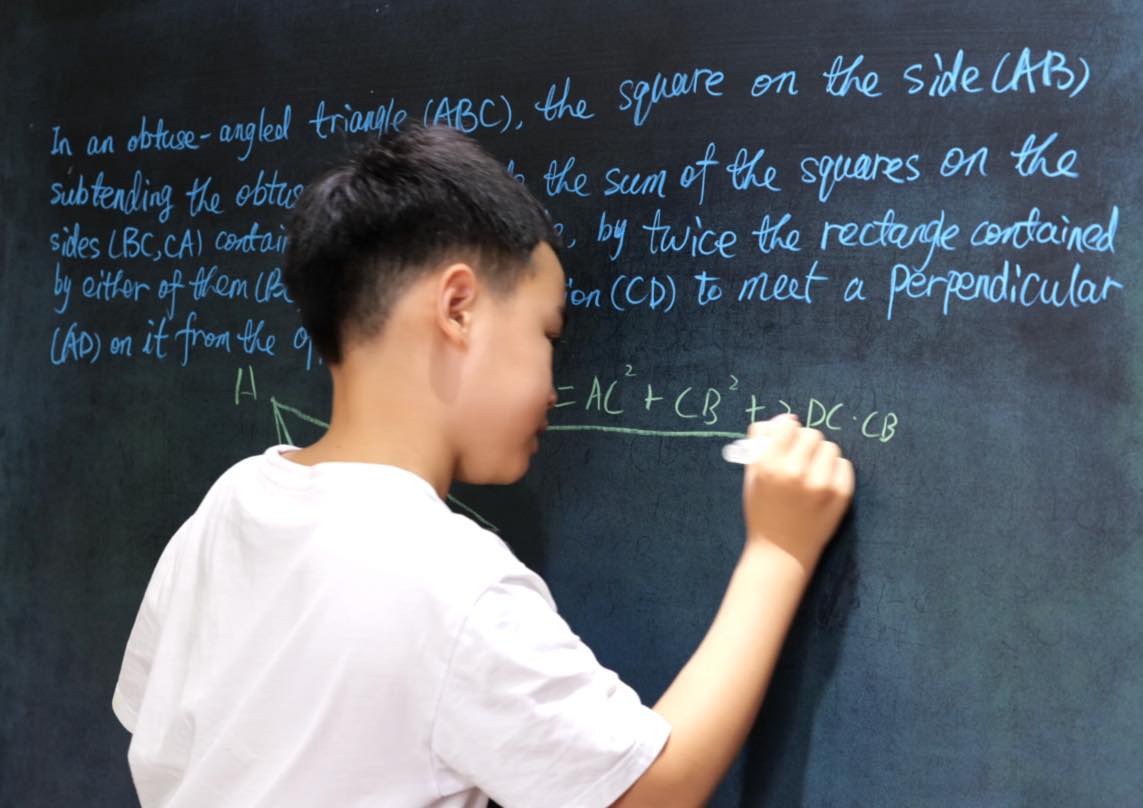 In an obtuse-angled triangle (ABC), the square on the side (AB)
subtending the the sum of the squares on the
sides (BC, CA) by twice the rectange contained
by either of them (CD) to meet a perpendicular
(AD) on it from the
A
= AC² + CB² + DC · CB